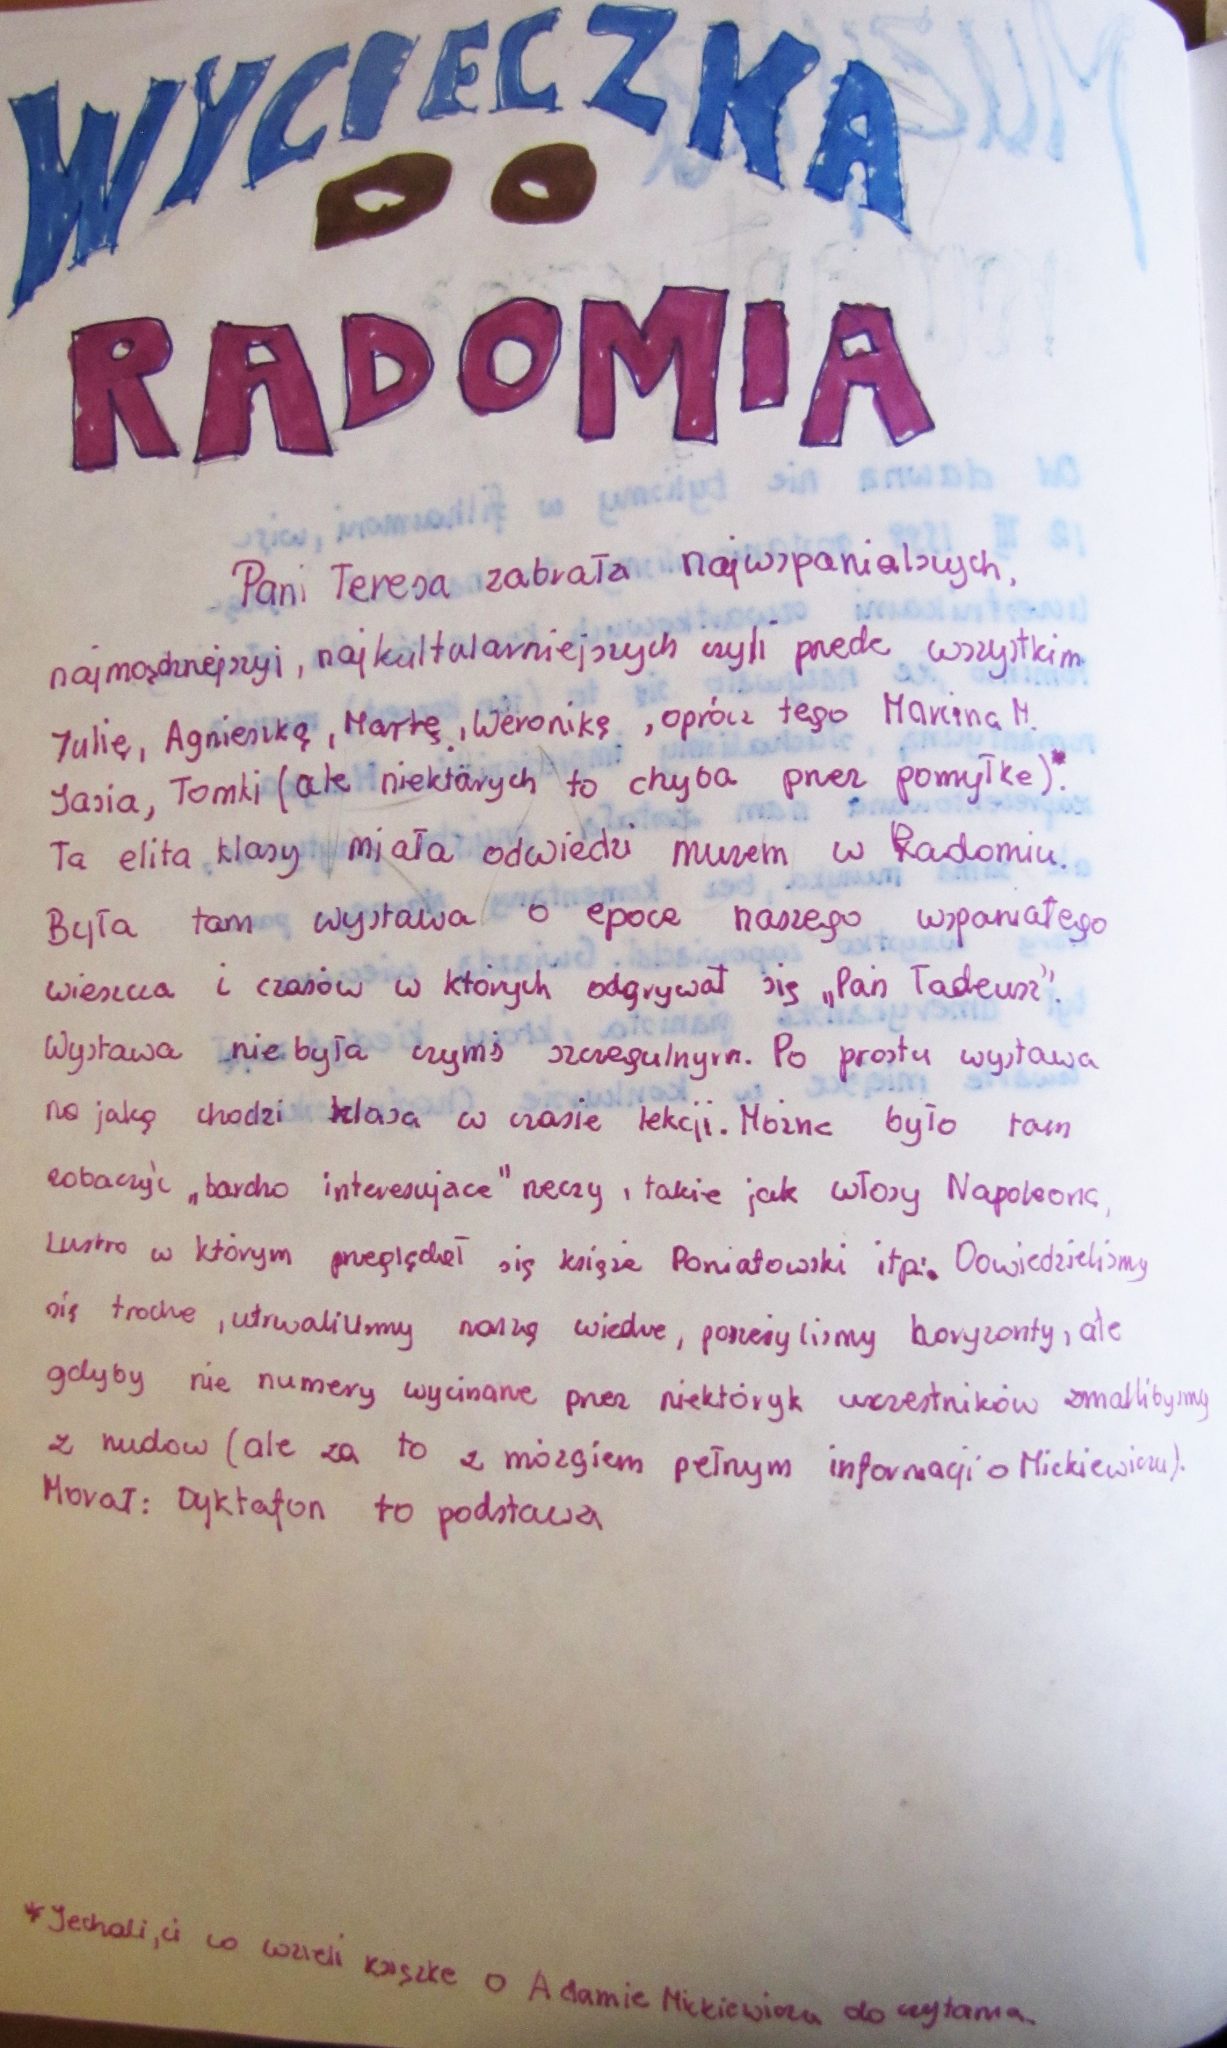 WYCIECZKA
DO
RADOMIA
Pani Teresa zabrała najwspanialszych,
najmądrzejszyi, najkulturalniejszych czyli przede wszystkim
Julię, Agnieszkę, Martę, Weronikę, oprócz tego Marcina M.
Jasia, Tomki (ale niektórych to chyba przez pomyłke)*.
Ta elita klasy miała odwiedzi muzem w Radomiu.
Była tam wystawa o epoce naszego wspaniałego
wieszcza i czasów w których odgrywał się „Pan Tadeusz".
Wystawa nie była czymś szczegulnym. Po prostu wystawa
na jaką chodzi klasa w czasie lekcji. Możne było tam
zobaczyć „bardzo interesujace" rzeczy, takie jak włosy Napoleona,
Lustro w którym przeglądał się książe Poniatowski itp. Dowiedzielismy
się troche, utrwalilismy naszą wiedze, poszeżylismy horyzonty, ale
gdyby nie numery wycinane przez niektóryk uczestników zmarlibysmy
z nudow (ale za to z mózgiem pełnym informacji o Mickiewiczu).
Morał: Dyktafon to podstawa
*Jechali, ci co wzieli książke o Adamie Mickiewiczu do czytania.